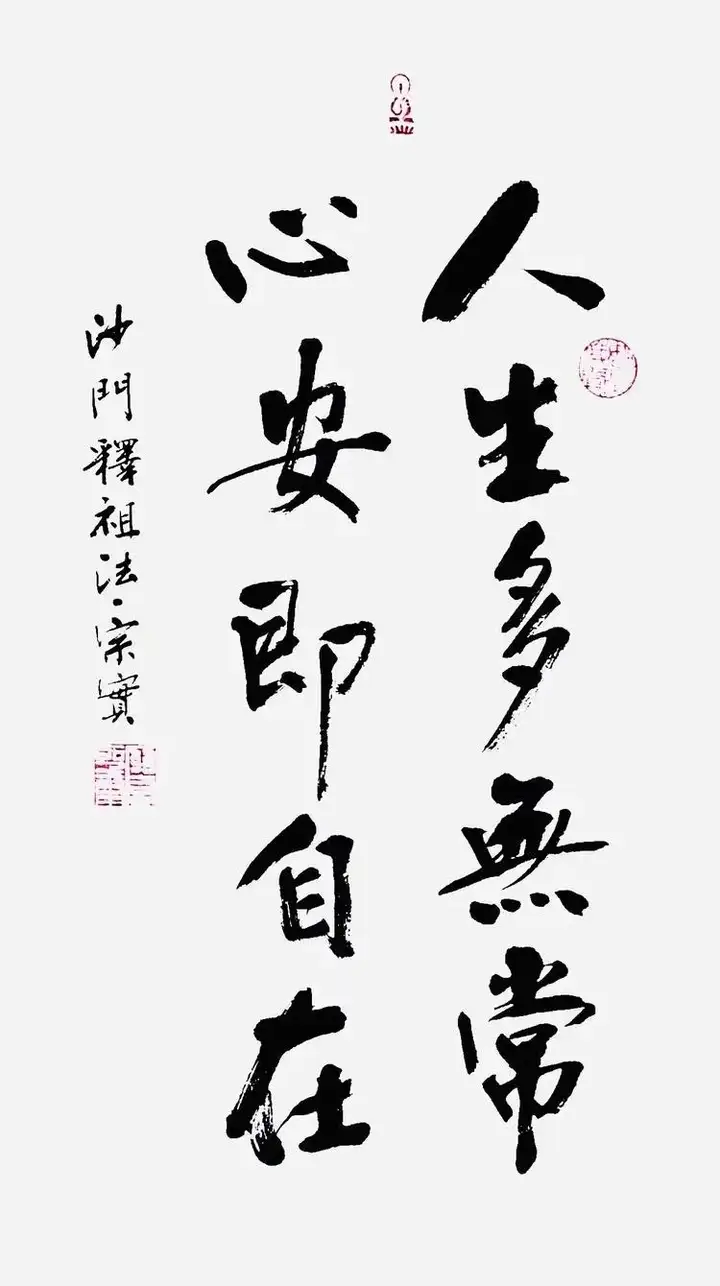 人生多無常
心安即自在
沙門釋祖法、宗實